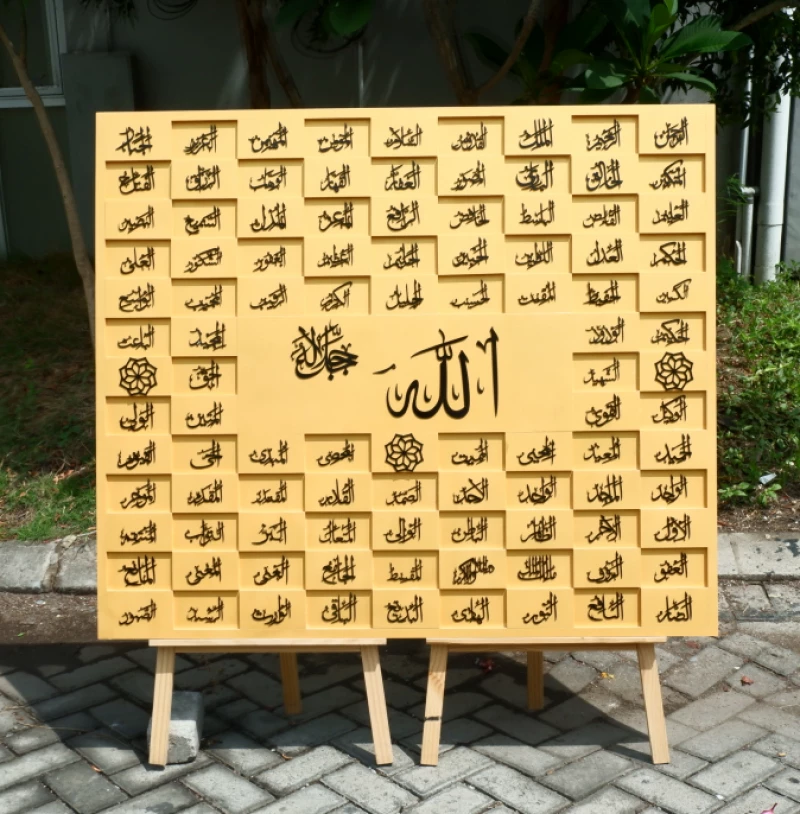 الرحمن الرحيم الملك القدوس السلام المؤمن المهيمن العزيز الجبار
المتكبر الخالق البارئ المصور الغفار القهار الوهاب الرزاق الفتاح
العليم القابض الباسط الخافض الرافع المعز المذل السميع البصير
الحكم العدل اللطيف الخبير الحليم العظيم الغفور الشكور العلي
الكبير الحفيظ المقيت الحسيب الجليل الكريم الرقيب المجيب الواسع
الحكيم الودود المجيد الباعث
الشهيد الله جل جلاله الحق
الوكيل القوي المتين الولي
الحميد المعيد المحيي المميت المحصي المبدئ الحي القيوم
الواجد الماجد الواحد الأحد الصمد القادر المقتدر المقدم المؤخر
الأول الآخر الظاهر الباطن الوالي المتعال البر التواب المنتقم
العفو الرؤوف مالك الملك ذو الجلال والإكرام المقسط الجامع الغني المغني المانع
الضار النافع النور الهادي البديع الباقي الوارث الرشيد الصبور